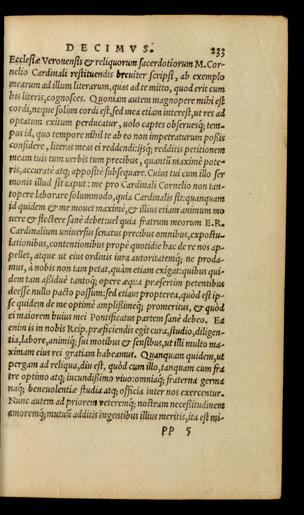 DECIMVS. 233
Ecclesiæ Veronensis & reliquorum sacerdotiorum M. Cor-
nelio Cardinali restituendis breuiter scripsi, ab exemplo
mearum ad illum literarum, quas ad te mitto, quod erit cum
his literis, cognosces. Quoniam autem magnopere mihi est
cordi, neque solùm cordi est, sed mea etiam interest, ut res ad
optatum exitum perducatur, uolo captes obseruesq́; tem-
pus id, quo tempore nihil te ab eo non impetraturum poßis
considere, literas meas ei reddendi: ijsq́; redditis petitionem
meam tuis tum uerbis tum precibus, quantũ maximè pote-
ris, accuratè atq; appositè subsequare. Cuius tui cum illo ser
monis illud sit caput: me pro Cardinali Cornelio non tan-
topere laborare solummodo, quia Cardinalis sit: quanquam
id quidem & me mouet maximè, & illius etiam animum mo
uere & flectere sanè debet: uel quia fratrum meorum E. R.
Cardinalium uniuersus senatus precibus omnibus, expostu-
lationibus, contentionibus propè quotidie hac de re nos ap-
pellet, atque ut eius ordinis iura autoritatemq́; ne proda-
mus, à nobis non tam petat, quàm etiam exigat: quibus qui-
dem tam aßiduè tantoq́; opere æqua præsertim petentibus
deesse nullo pacto possum: sed etiam propterea, quòd est ip-
se quidem de me optimè amplißimeq́; promeritus, & quòd
ei maiorem huius mei Pontificatus partem sanè debeo. Ea
enim is in nobis Reip. præficiendis egit cura, studio, diligen-
tia, labore, animiq́; sui motibus & sensibus, ut illi multo ma-
ximam eius rei gratiam habeamus. Quanquam quidem, ut
pergam ad reliqua, diu est, quòd cum illo, tanquam cum fra
tre optimo atq; iucundißimo uiuo: omniaq́; fraterna germa
naq́; beneuolentiæ studia atq; officia inter nos exercentur.
Nunc autem ad priorem ueteremq́; nostram necessitudinem
amoremq́; mutuũ additis ingentibus illius meritis, ita est mi-
PP 5